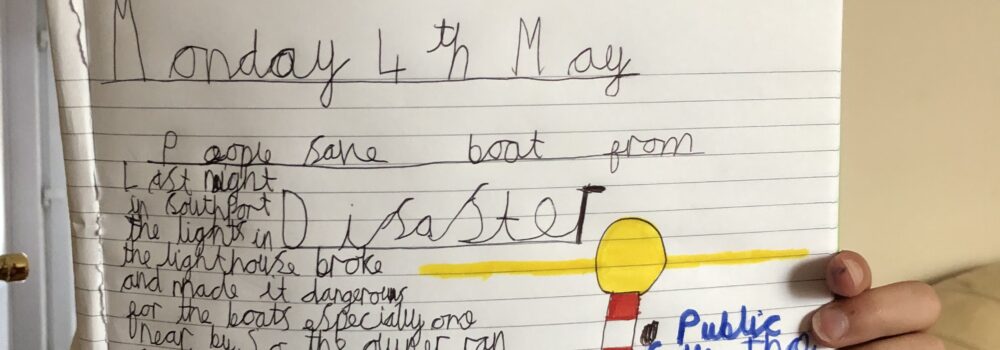 Monday 4th May
People save boat from
Disaster
Last night
in Southport
the lights in
the lighthouse broke
and made it dangerous
for the boats especially one
near by. So the owner ran
Public